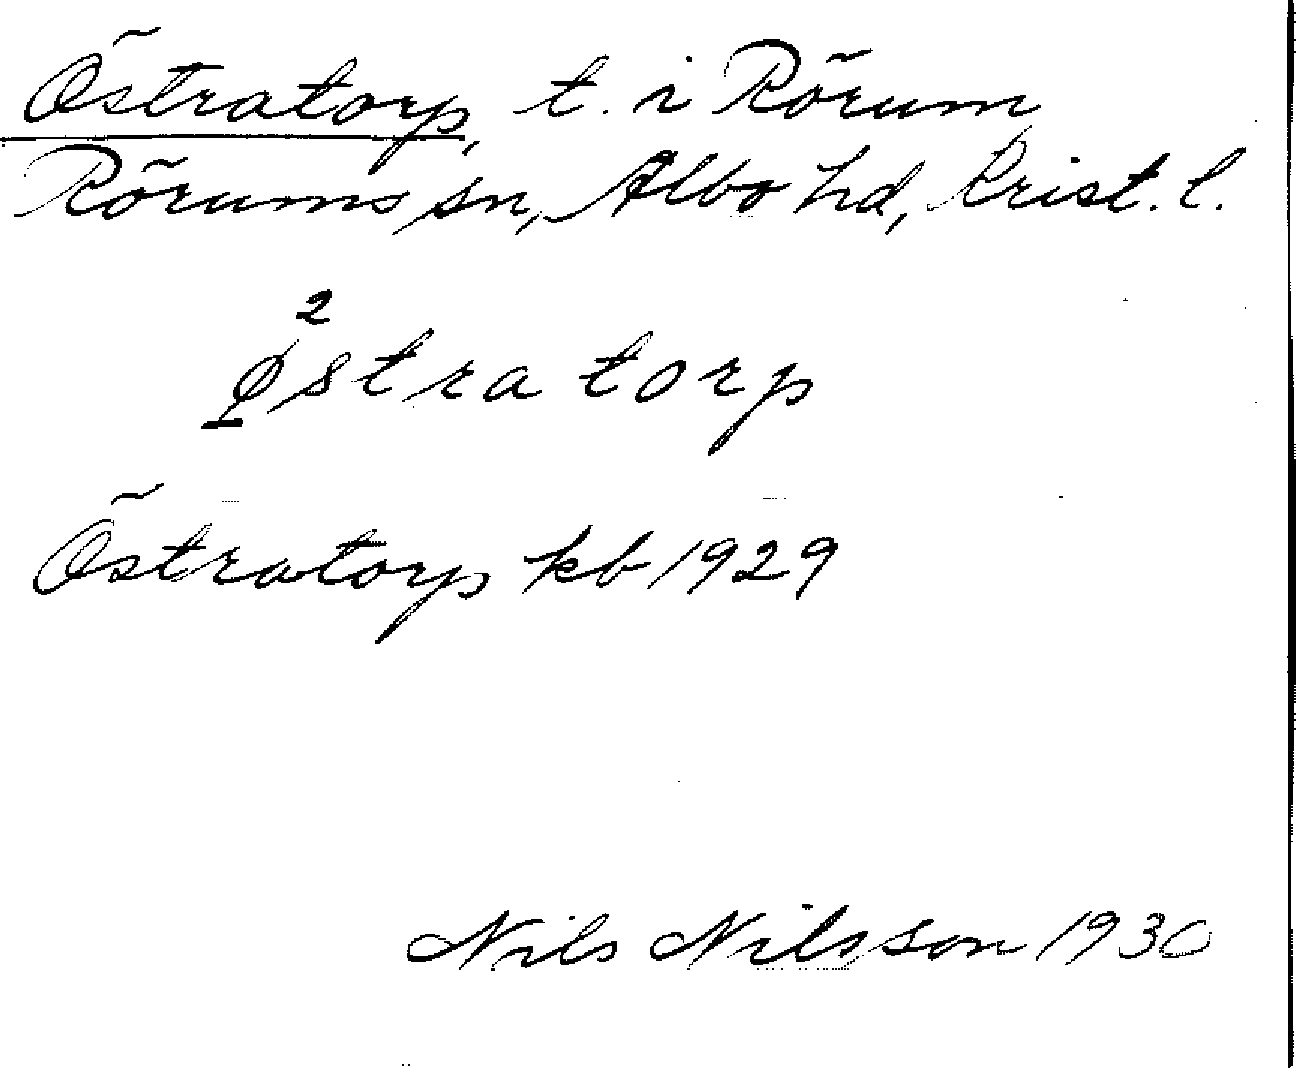 Östratorp, t. i Rörum
Rörums sn, Albo hd, Krist. l.
2
østra torp
Östratorp kb 1929
Nils Nilsson 1930